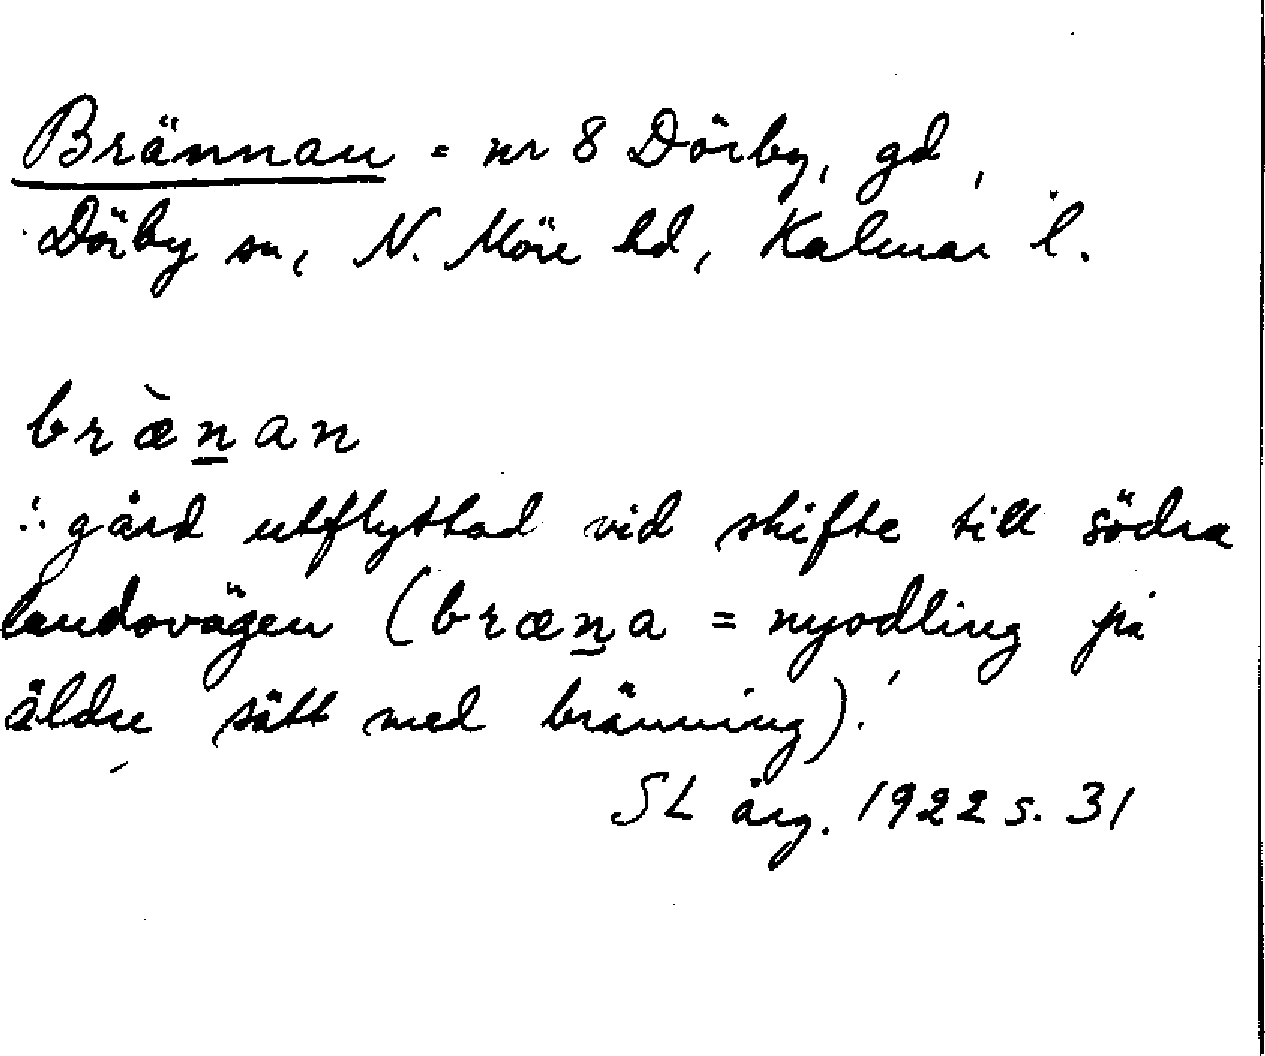 Brännan = nr 8 Dörby, gd,
Dörby sn, N. Möre hd, Kalmar l.
bræ̀n̲an
∴ gård utflyttad vid skifte till södra
landsvägen (bræn̲a = nyodling på
äldre sätt med bränning).
SL årg. 1922 s. 31